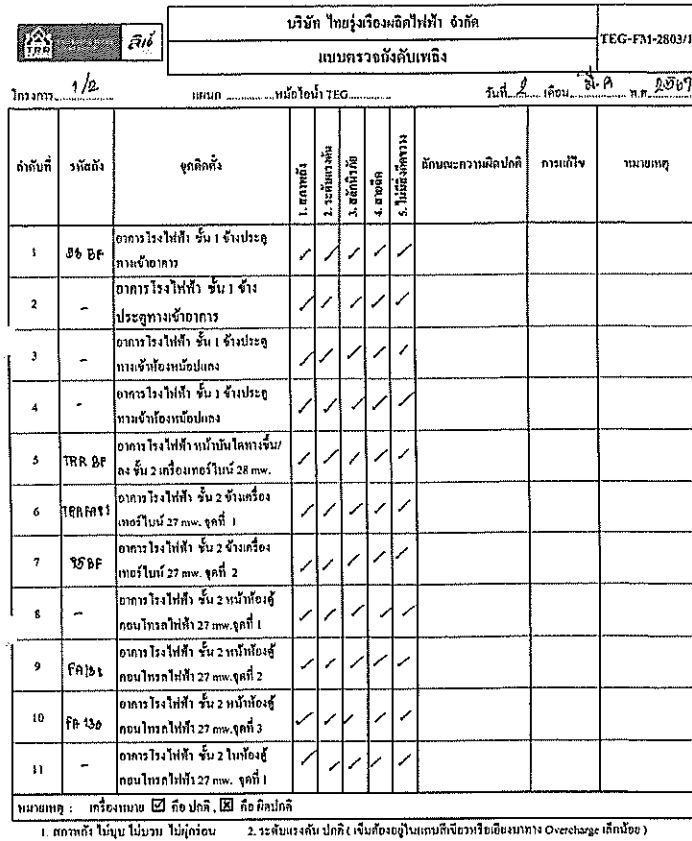 TRR
ลิซ่
บริษัท ไทยรุ่งเรืองผลิตไฟฟ้า จำกัด
แบบตรวจถังดับเพลิง
TEG-FM-2803/1
โครงการ 1/2 แผนก หม้อไอน้ำ TEG วันที่ 2 เดือน มี.ค พ.ศ. 2567
ลำดับที่ รหัสถัง จุดติดตั้ง 1. สภาพถัง 2. ระดับแรงดัน 3. สลักนิรภัย 4. สายฉีด 5. ไม่มีสิ่งกีดขวาง ลักษณะความผิดปกติ การแก้ไข หมายเหตุ
1 36 BF อาคารโรงไฟฟ้า ชั้น 1 ข้างประตู ✓ ✓ ✓ ✓ ✓
ทางเข้าอาคาร
2 - อาคารโรงไฟฟ้า ชั้น 1 ข้าง ✓ ✓ ✓ ✓ ✓
ประตูทางเข้าอาคาร
3 - อาคารโรงไฟฟ้า ชั้น 1 ข้างประตู ✓ ✓ ✓ ✓ ✓
ทางเข้าห้องหม้อแปลง
4 - อาคารโรงไฟฟ้า ชั้น 1 ข้างประตู ✓ ✓ ✓ ✓ ✓
ทางเข้าห้องหม้อแปลง
5 TRR BF อาคารโรงไฟฟ้า หน้าบันไดทางขึ้น/ ✓ ✓ ✓ ✓ ✓
ลง ชั้น 2 เครื่องเทอร์ไบน์ 28 mw.
6 อาคารโรงไฟฟ้า ชั้น 2 ข้างเครื่อง ✓ ✓ ✓ ✓ ✓
เทอร์ไบน์ 27 mw. จุดที่ 1
7 95BF อาคารโรงไฟฟ้า ชั้น 2 ข้างเครื่อง ✓ ✓ ✓ ✓ ✓
เทอร์ไบน์ 27 mw. จุดที่ 2
8 - อาคารโรงไฟฟ้า ชั้น 2 หน้าห้องตู้ ✓ ✓ ✓ ✓ ✓
คอนโทรลไฟฟ้า 27 mw.จุดที่ 1
9 อาคารโรงไฟฟ้า ชั้น 2 หน้าห้องตู้ ✓ ✓ ✓ ✓ ✓
คอนโทรลไฟฟ้า 27 mw.จุดที่ 2
10 FA 130 อาคารโรงไฟฟ้า ชั้น 2 หน้าห้องตู้ ✓ ✓ ✓ ✓ ✓
คอนโทรลไฟฟ้า 27 mw.จุดที่ 3
11 - อาคารโรงไฟฟ้า ชั้น 2 ในห้องตู้ ✓ ✓ ✓ ✓ ✓
คอนโทรลไฟฟ้า 27 mw. จุดที่ 1
หมายเหตุ : เครื่องหมาย ☑ คือ ปกติ , ☒ คือ ผิดปกติ
1. สภาพถัง ไม่บุบ ไม่บวม ไม่ผุกร่อน 2. ระดับแรงดัน ปกติ ( เข็มต้องอยู่ในแถบสีเขียวหรือเอียงมาทาง Overcharge เล็กน้อย )